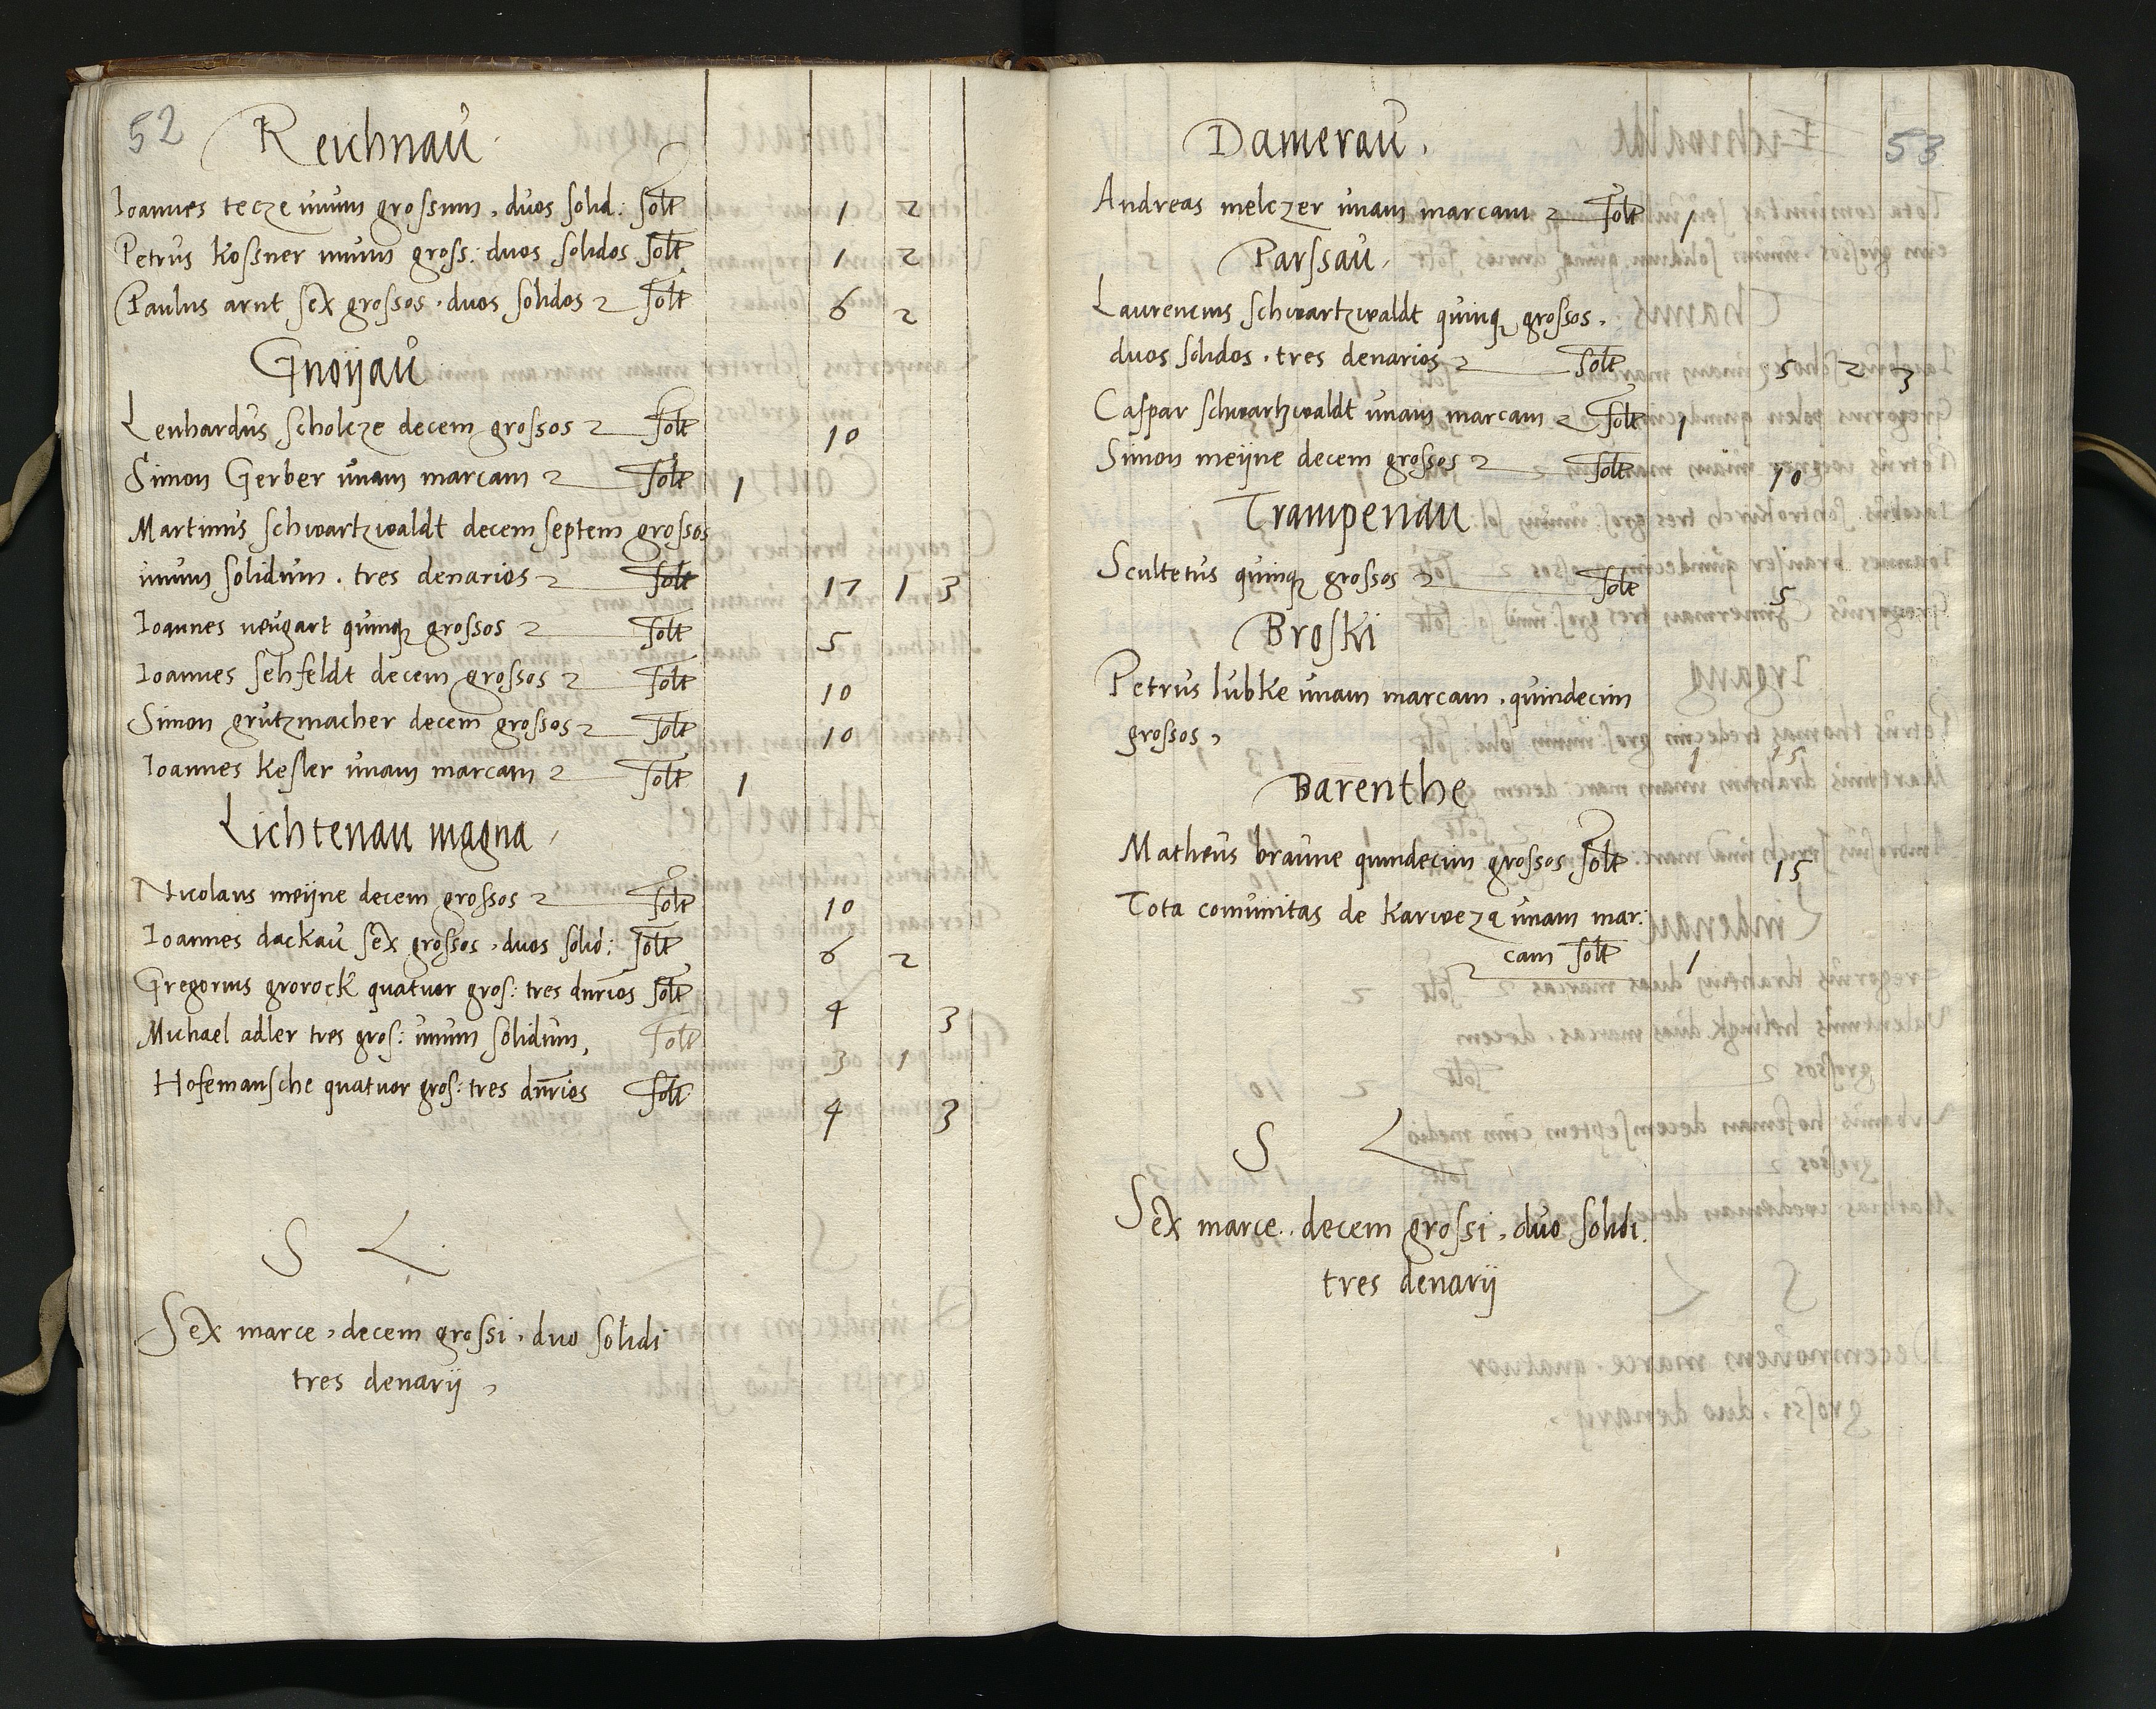 52
Reichnau
Ioannes tecze unum grossum, duos solid: solt 1 2
Petrus kossner unum gross: duos solidos solt 1 2
Paulus arnt sex grossos, duos solidos solt 6 2
Gnoijau
Lenhardus scholcze decem grossos solt 10
Simon Gerber unam marcam solt 1
Martinus schwartzwaldt decem septem grossos
unum solidum, tres denarios solt 17 1 3
Ioannes neugart quinqz grossos solt 5
Ioannes sehfeldt decem grossos solt 10
Simon grutzmacher decem grossos solt 10
Ioannes kesler unam marcam solt 1
Lichtenau magna
Nicolaus meijne decem grossos solt 10
Ioannes dackau sex grossos, duos solid: solt 6 2
Gregorius grorock quatuor gros: tres dnrios solt 4 3
Michael adler tres gros: unum solidum, solt 3 1
Hofemansche quatuor gros: tres dnrios solt 4 3
S L
Sex marce, decem grossi, duo solidi
tres denarij,
53
Damerau.
Andreas melczer unam marcam solt 1
Parssau.
Laurencius schwartzwaldt quinqz grossos,
duos solidos, tres denarios solt 5 2 3
Caspar schwartzwaldt unam marcam solt 1
Simon meijne decem grossos solt 10
Trampenau
Scultetus quinqz grossos solt 5
Broski
Petrus lubke unam marcam, quindecim
grossos, 1 15
Barenthe
Matheus braune quindecim grossos solt 15
Tota comunitas de karweze unam mar:
cam solt 1
S L
Sex marce, decem grossi, duo solidi.
tres denarij